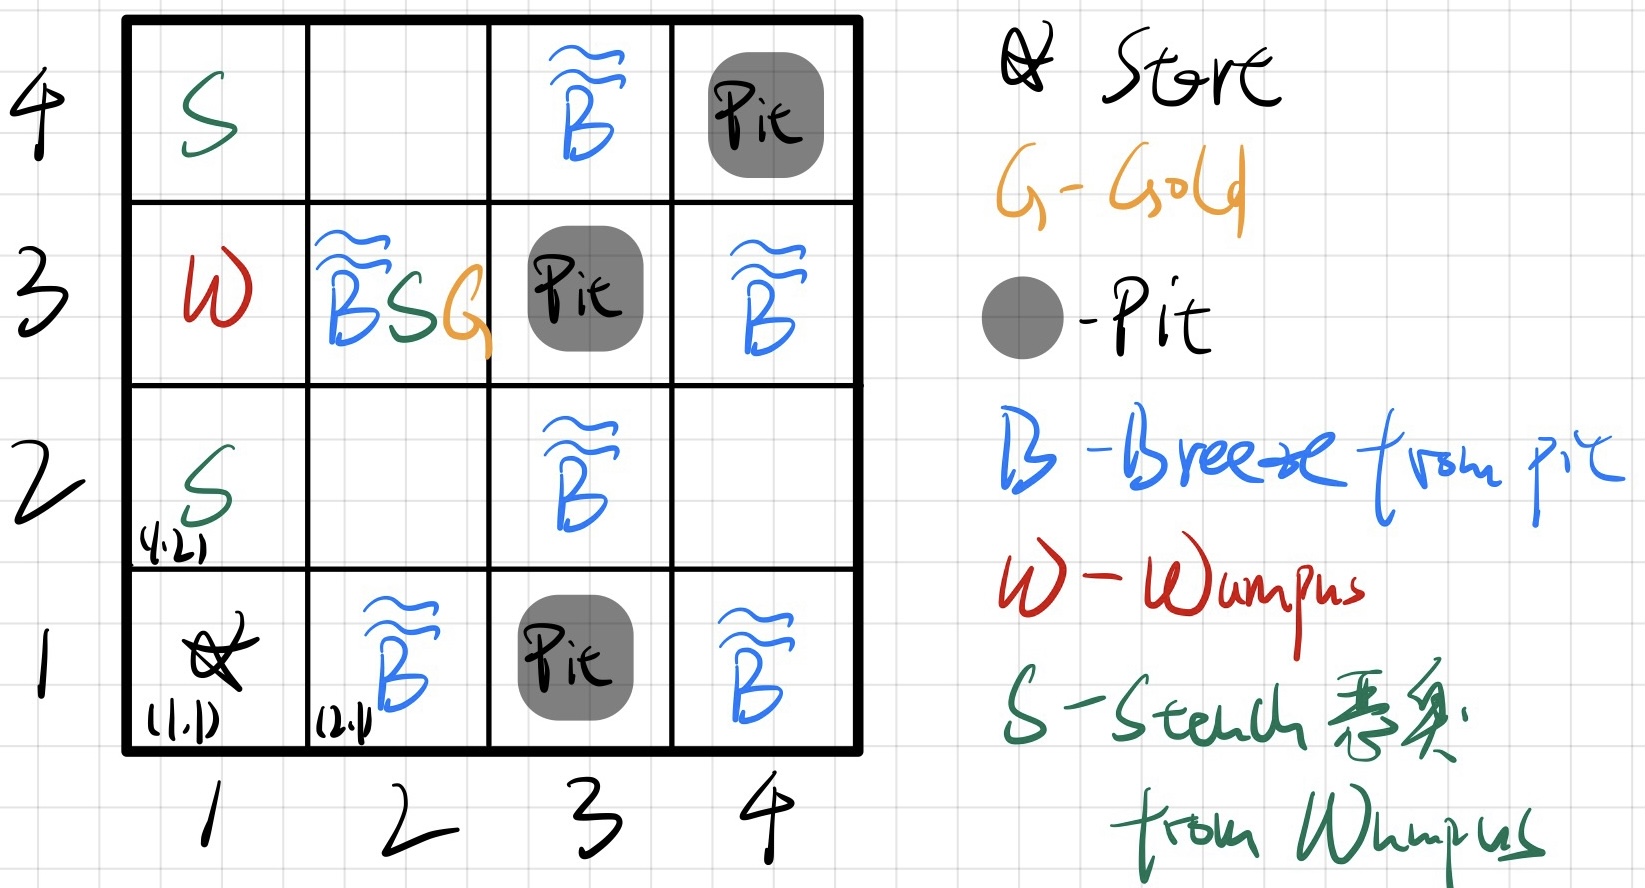 4 S B Pit
3 W B S G Pit B
2 S B
(1,2)
1 B Pit B
(1,1) (2,1)
1 2 3 4
Start
G - Gold
- Pit
B - Breeze from pit
W - Wumpus
S - Stench 恶臭
from Wumpus